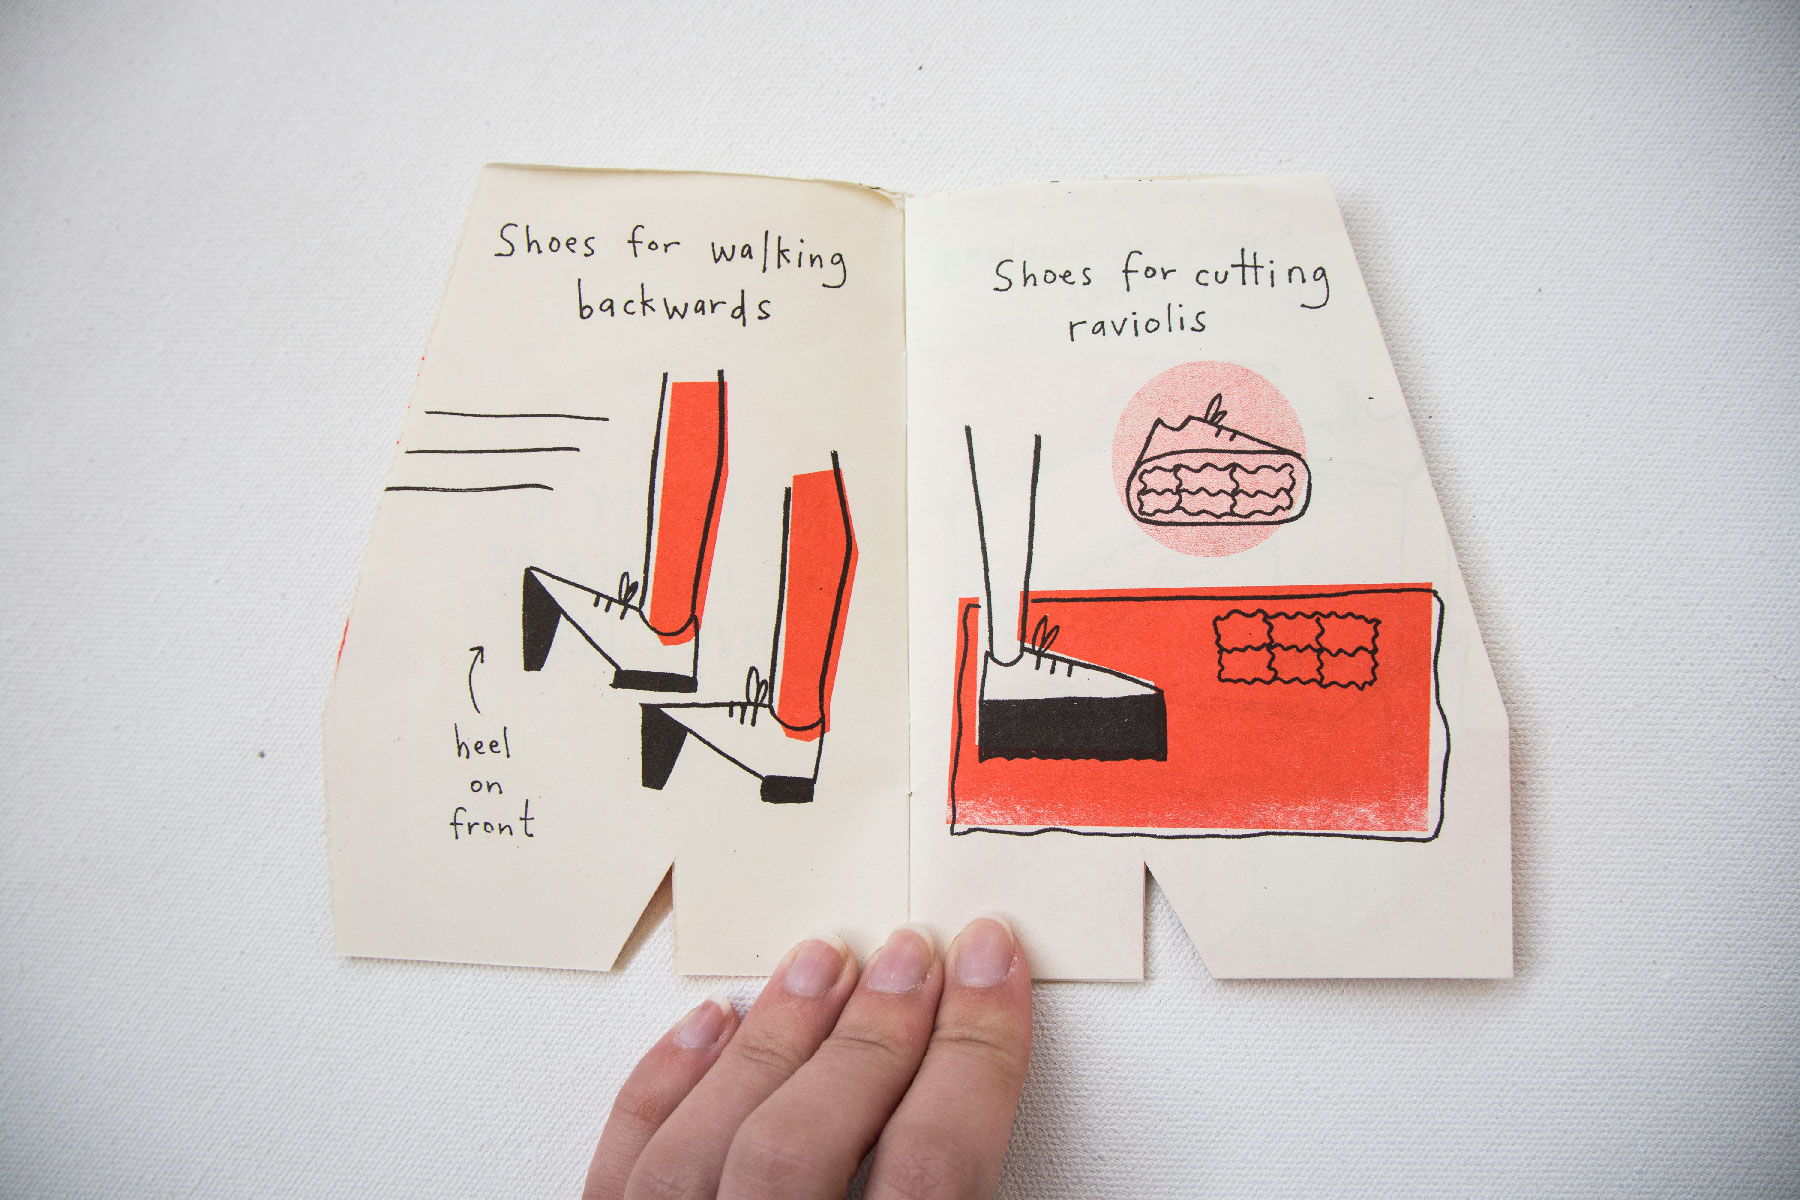 Shoes for walking
backwards
heel
on
front
Shoes for cutting
raviolis